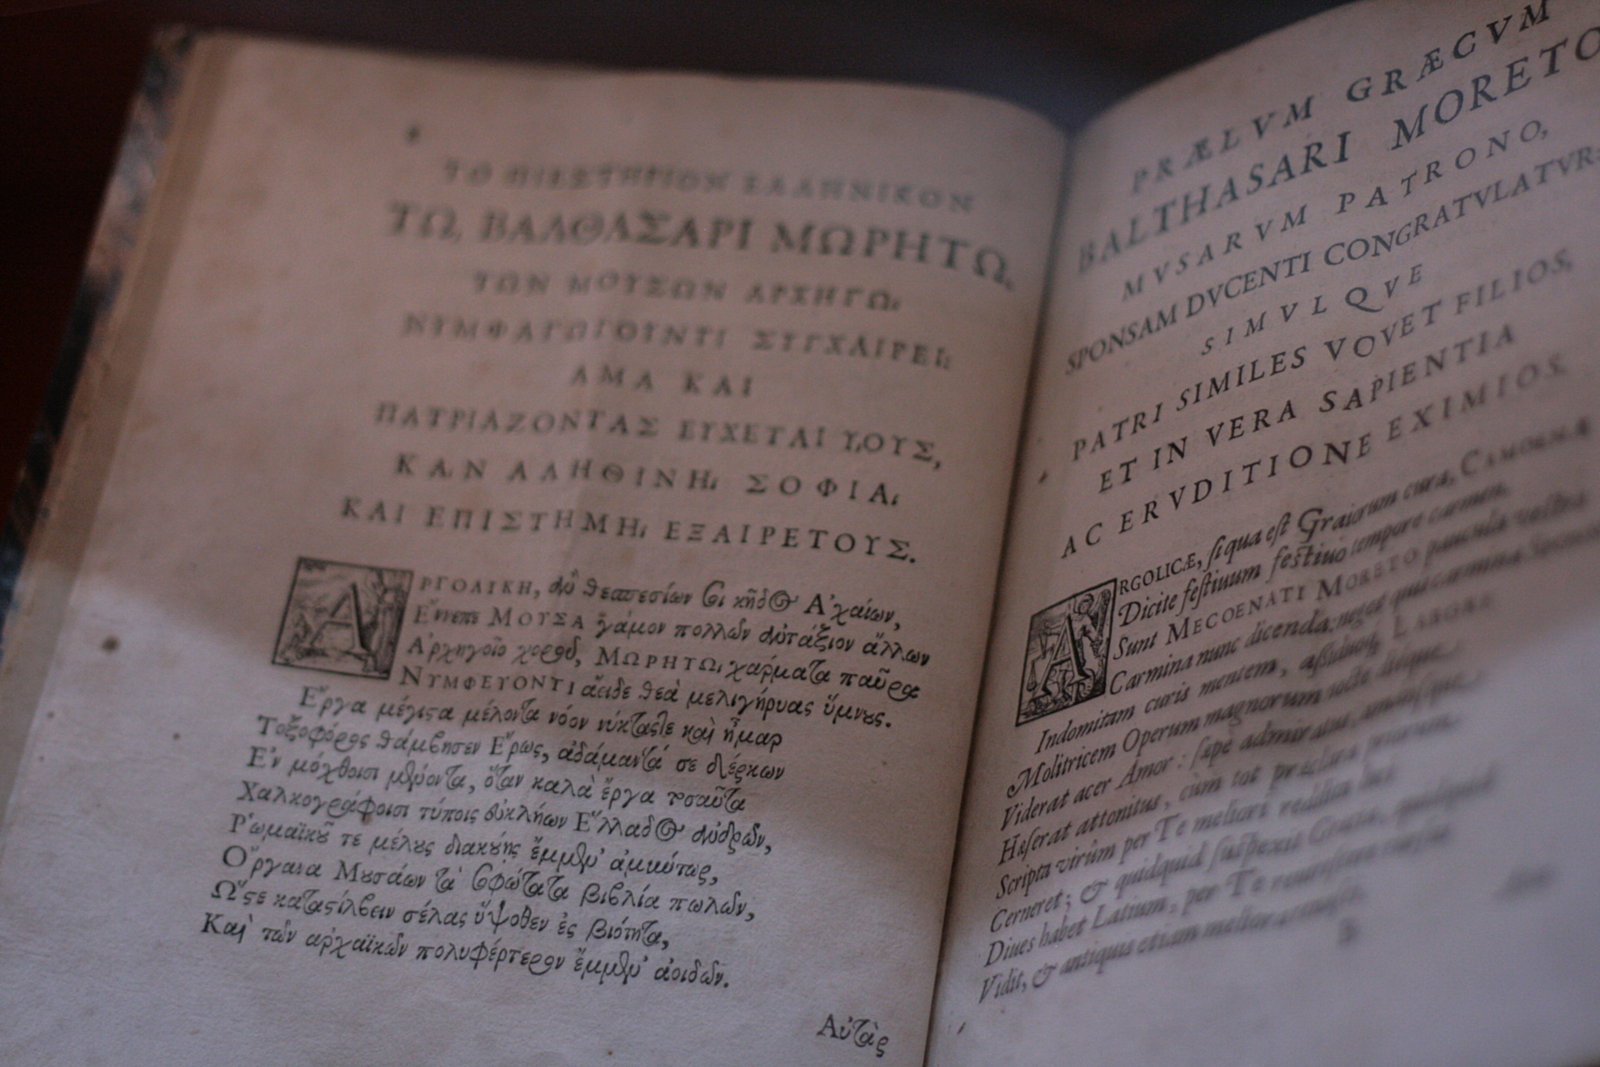 ΤΟ ΠΙΕΣΤΗΡΙΟΝ ΕΛΛΗΝΙΚΟΝ
ΤΩ, ΒΑΛΘΑΣΑΡΙ ΜΩΡΗΤΩ,
ΤΩΝ ΜΟΥΣΩΝ ΑΡΧΗΓΩ,
ΝΥΜΦΑΓΩΓΟΥΝΤΙ ΣΥΓΧΑΙΡΕΙ,
ΑΜΑ ΚΑΙ
ΠΑΤΡΙΑΖΟΝΤΑΣ ΕΥΧΕΤΑΙ ΥΙΟΥΣ,
ΚΑΝ ΑΛΗΘΙΝΗ, ΣΟΦΙΑ,
ΚΑΙ ΕΠΙΣΤΗΜΗ, ΕΞΑΙΡΕΤΟΥΣ.
ΑΡΓΟΛΙΚΗ, θεσπεσίων εἰ κῆδος Ἀχαίων,
Ἔννεπε ΜΟΥΣΑ γάμον πολλῶν ἀντάξιον ἄλλων
Ἀρχηγοῖο χοροῦ, ΜΩΡΗΤΩ, χαρματα παῦρα
ΝΥΜΦΕΥΟΝΤΙ ἄειδε θεὰ μελιγήρυας ὕμνους.
Ἔργα μέγιστα μέλοντα νόον νύκταςτε καὶ ἦμαρ
Τοξοφόρος θάμβησεν Ἔρως, ἀδάμαντά σε
Ἐν μόχθοισι μένοντα, ὅταν καλὰ ἔργα τοσαῦτα
Χαλκογράφοισι τύποις εὐκλήων Ἑλλάδος ἀνδρῶν,
Ῥωμαϊκοῦ τε μέλους ἔμμεν
Ὄργανα Μουσάων τὰ σοφώτατα βιβλία πωλῶν,
Ὥςε σέλας ὕψοθεν ἐς βιότητα,
Καὶ τῶν ἀρχαϊκῶν πολυφέρτερον ἔμμεν ἀοιδῶν.
Αὐτὰρ
PRÆLVM GRÆCVM
BALTHASARI MORETO
MVSARVM PATRONO,
SPONSAM DVCENTI CONGRATVLATVR
SIMVLQVE
PATRI SIMILES VOVET FILIOS,
ET IN VERA SAPIENTIA
AC ERVDITIONE EXIMIOS.
ARGOLICÆ, si qua est Graiorum cura, CAMOENÆ
Dicite festiuum festiuo tempore carmen,
Sunt MECOENATI MORETO paucula vestro
Carmina nunc dicenda, neget quis carmina
Indomitam curis mentem, assiduoq́, LABORE
Molitricem Operum magnorum nocte dieque
Viderat acer Amor: sæpè admiratus,
Haserat attonitus, cùm tot præclara priorum
Scripta virûm per Te meliori reddita
Cerneret; & quidquid suspexit Græcia, quidquid
Diues habet Latium, per Te
Vidit, & antiquis etiam meliora